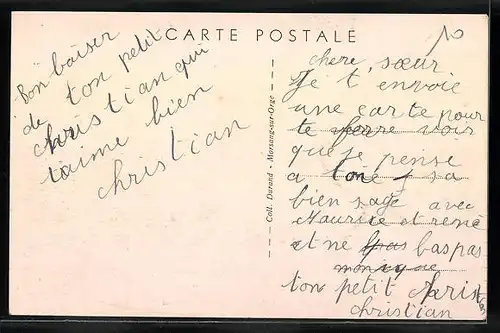 CARTE POSTALE
10
Bon baiser
de ton petit
christian qui
t'aime bien
christian
Coll. Durand - Morsang-sur-Orge
chere, sœur
Je t envoie
une carte pour
te voir
que je pense
a toi sa
bien sage avec
Maurice et rené
et ne bas pas
monique
ton petit christian
christian